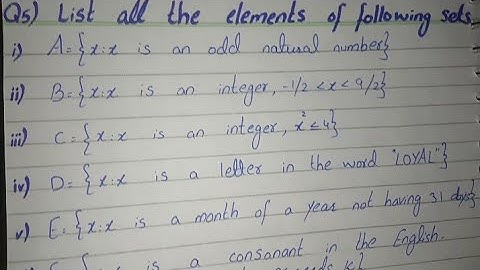 Q5) List all the elements of following sets.
i) A={x:x is an odd natural number}
ii) B={x:x is an integer, -1/2 < x < 9/2}
iii) C={x:x is an integer, x² ≤ 4}
iv) D={x:x is a letter in the word "LOYAL"}
v) E={x:x is a month of a year not having 31 days}
is a consonant in the English.